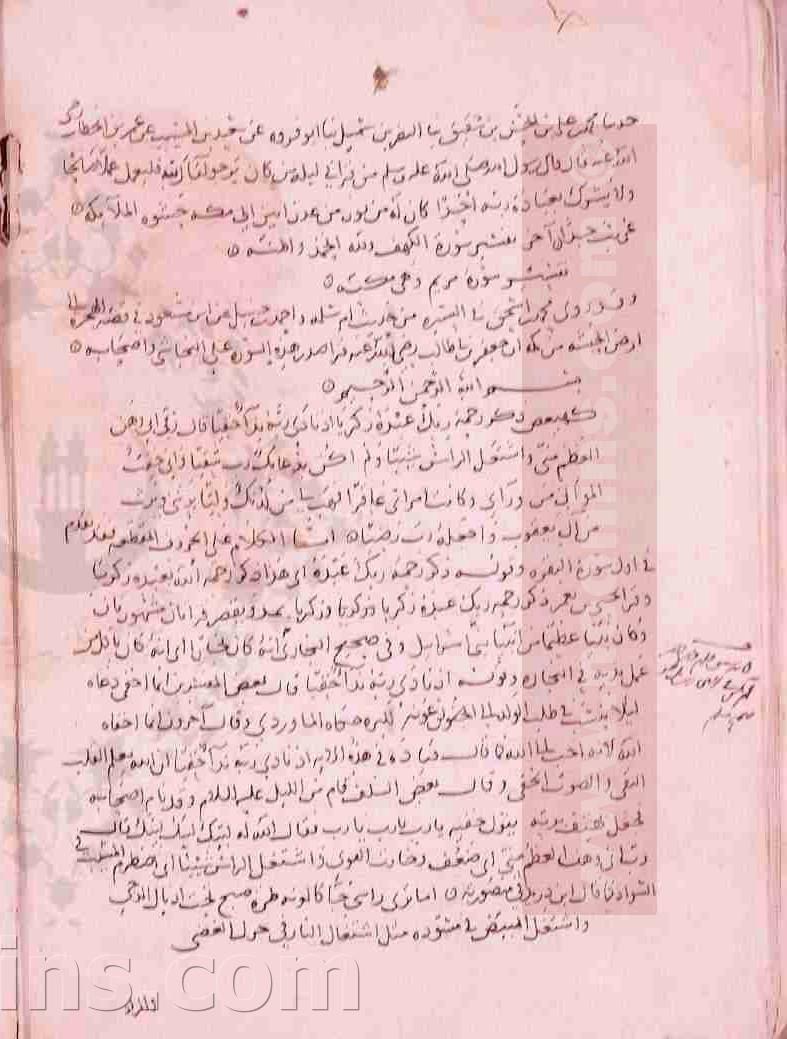 حدثنا محمد بن علي بن الحسن بن شقيق ثنا النضر بن شميل ثنا ابو قروه عن سعيد بن المسيب عن عمر بن الخطاب رضي
الله عنه قال قال رسول الله صلى الله عليه وسلم من قرا في ليلة من كان يرجو لقاء ربه فليعمل عملا صالحا
ولا يشرك بعبادة ربه احدا كان له من نور من عدن ابين الى مكه حشوه الملايكه
غريب جدا آخر تفسير سورة الكهف ولله الحمد والمنه
تفسير سورة مريم وهي مكيه
وقد روى محمد بن اسحق في السيره من حديث ام سلمه واحمد بن حنبل عن ابن مسعود في قصه الهجره الى
ارض الحبشه من مكه ان جعفر بن ابي طالب رضي الله عنه قرا صدر هذه السوره على النجاشي واصحابه
بسم الله الرحمن الرحيم
كهيعص ذكر رحمة ربك عبده زكريا اذ نادى ربه نداء خفيا قال رب اني وهن
العظم مني واشتعل الراس شيبا ولم اكن بدعائك رب شقيا واني خفت
الموالي من وراي وكانت امراتي عاقرا فهب لي من لدنك وليا يرثني ويرث
من ال يعقوب واجعله رب رضيا اما الكلام على الحروف المقطعه فقد تقدم
في اول سورة البقره وقوله ذكر رحمة ربك عبده اي هذا ذكر رحمة الله بعبده زكريا
وقرا يحيى بن يعمر ذكر رحمة ربك عبده زكريا وزكريا يمد ويقصر قراتان مشهورتان
وكان نبيا عظيما من انبيا بني اسرايل وفي صحيح البخاري انه كان نجارا اي انه كان ياكل من
عمل يديه في النجاره وقوله اذ نادى ربه نداء خفيا قال بعض المفسرين انما اخفى دعاه
ليلا ينسب في طلب الولد الى الرعونه لكبره حكاه الماوردي وقال آخرون انما اخفاه
لانه احب الى الله كما قال قتاده في هذه الايه اذ نادى ربه نداء خفيا ان الله يعلم القلب
التقي والصوت الخفي وقال بعض السلف قام من الليل عليه السلام وقد نام اصحابه
فجعل يهتف بربه يقول خفيه يا رب يا رب يا رب فقال الله له لبيك لبيك لبيك قال
رب اني وهن العظم مني اي ضعف وخارت القوى واشتعل الراس شيبا اي اضطرم المشيب في
السواد كما قال ابن دريد في مقصورته اما ترى راسي حاكى لونه طرة صبح تحت اذيال الدجى
واشتعل المبيض في مسوده مثل اشتعال النار في جمر الغضى
والمراد
ins.com